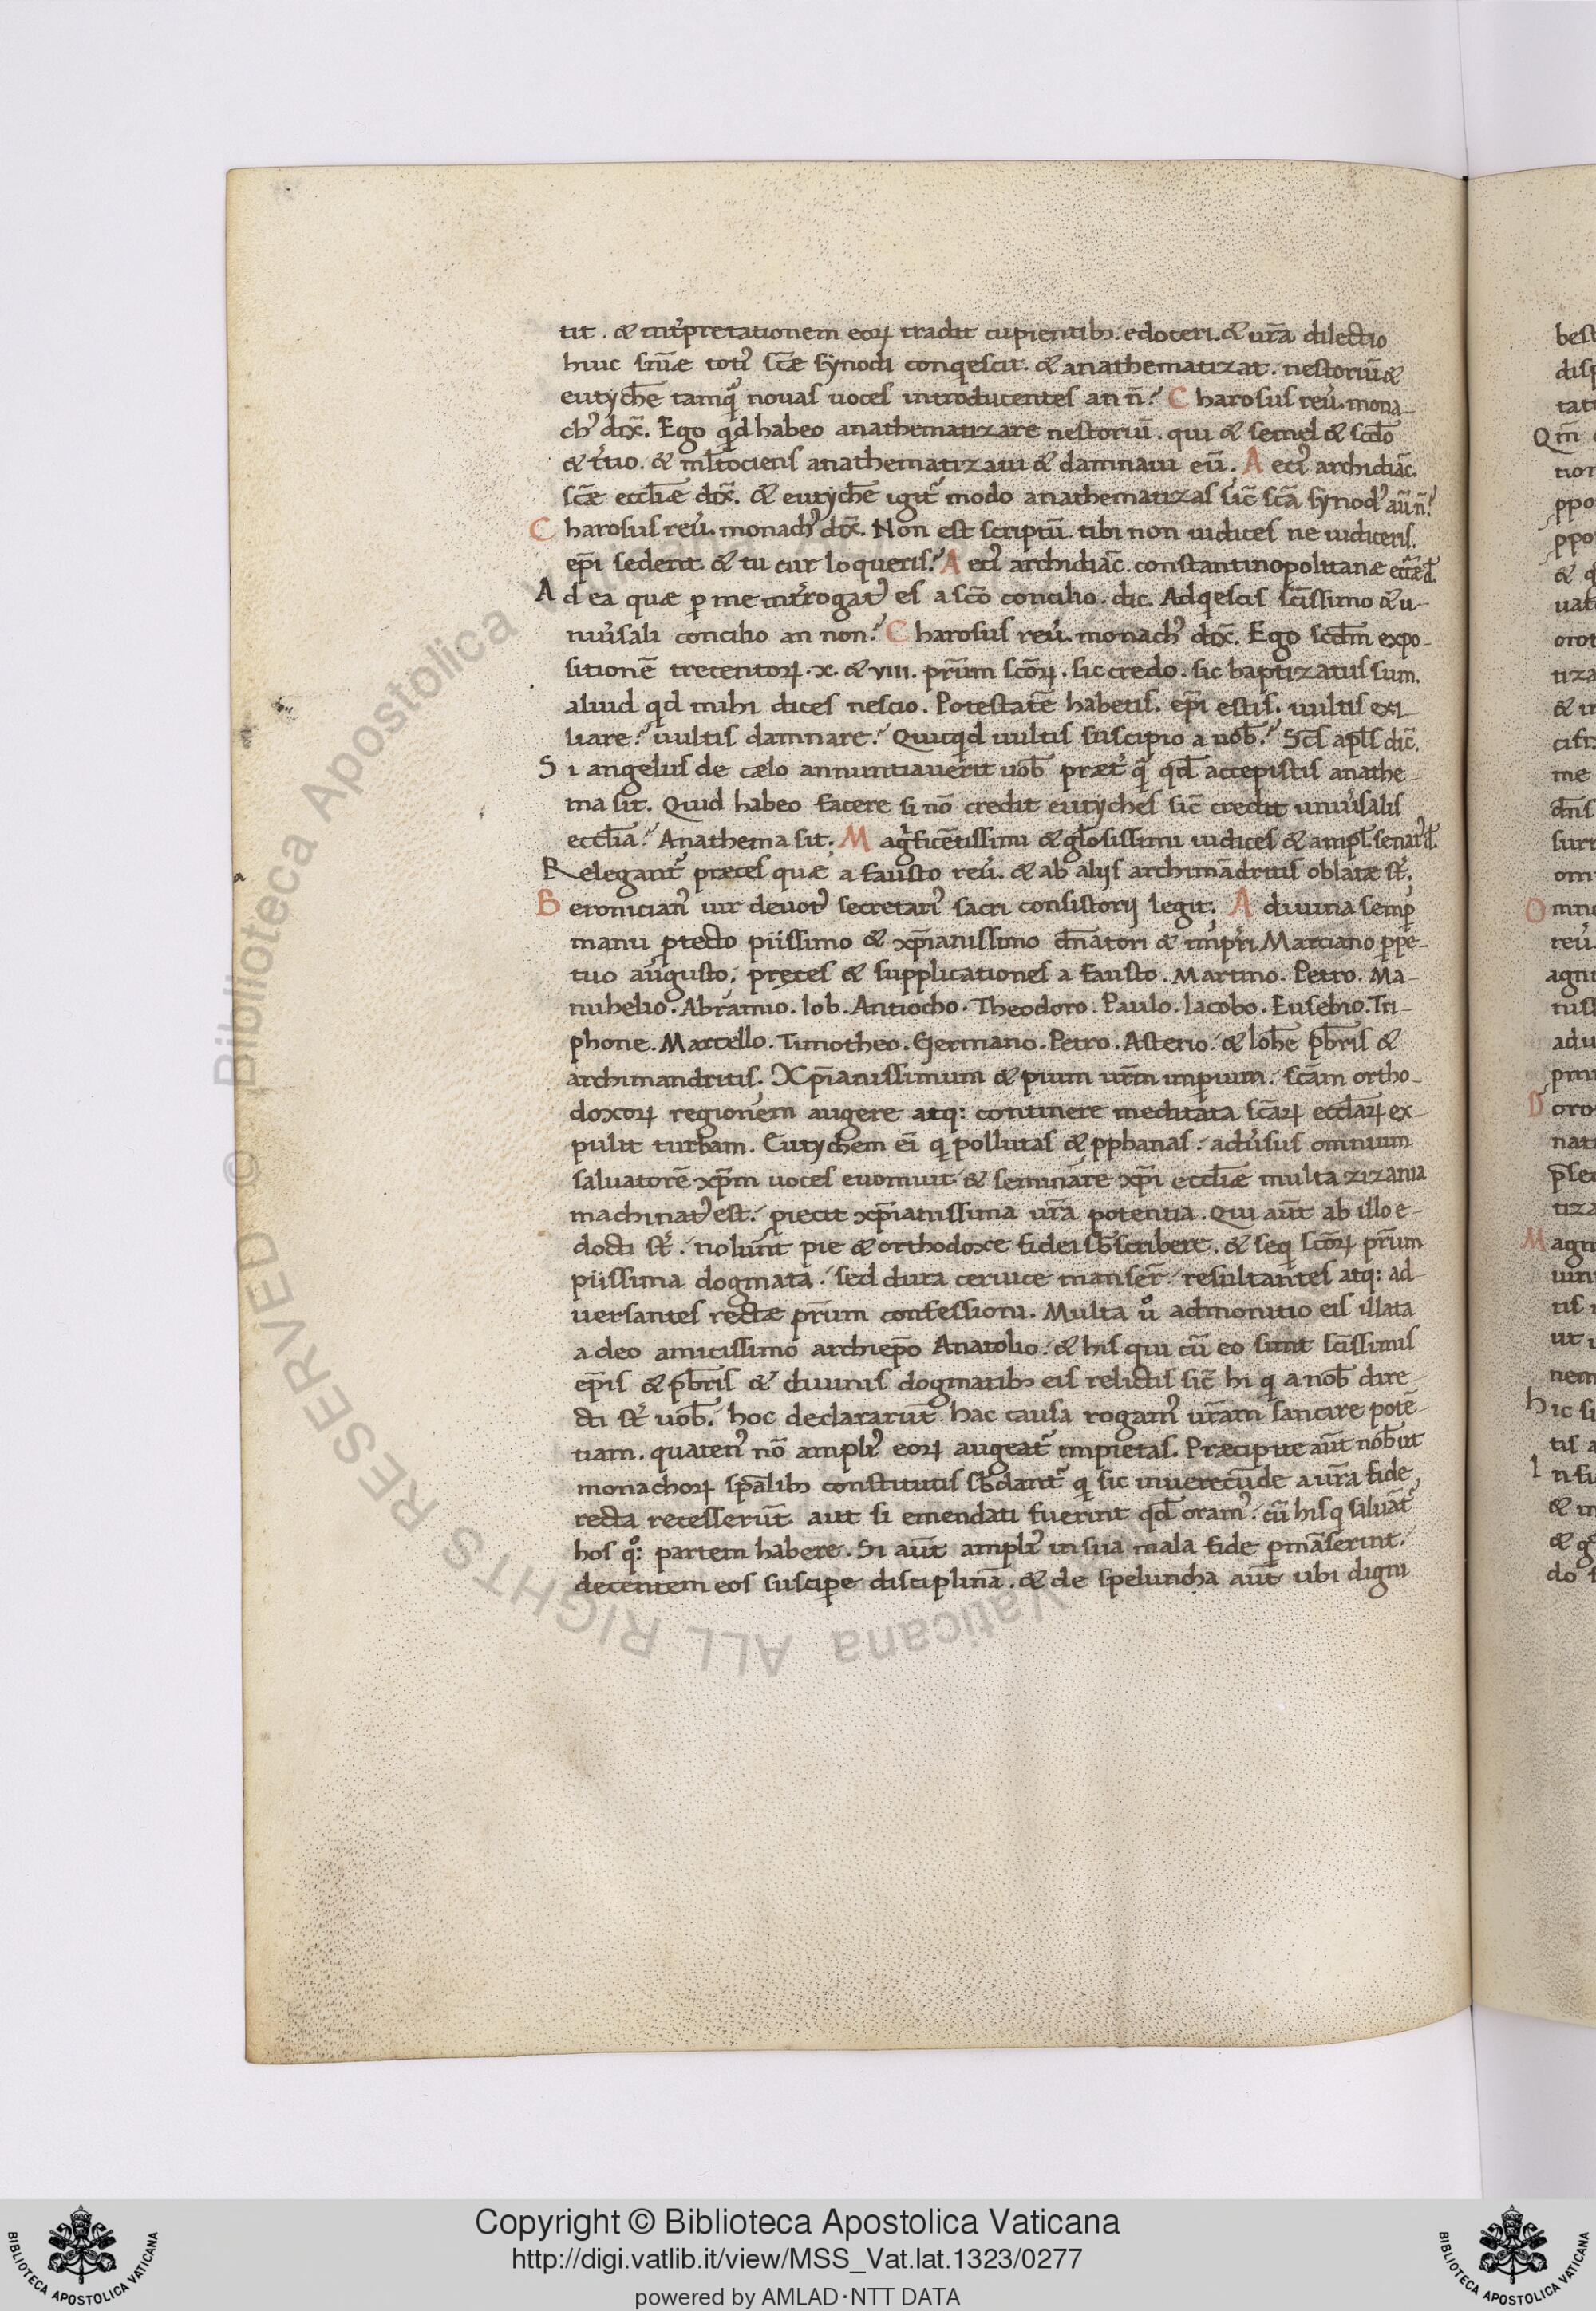 tit. & int̉pretationem eoꝝ tradit cupientibꝫ edoceri. & ur̄a dilectio
huic sn̄iæ toti᾽ sc̄æ synodi conqͥescit. & anathematizat. nestoriū &
eutychē tamqͣ nouas uoces introducentes an n̄? Charosus reu᾽. mona-
ch᾽ dix̄. Ego qͥd habeo anathematizare nestoriū. qui & semel & scd̄o
& t̉tio. & ml̄tociens anathematizaui & damnaui eū. Aeti᾽ archidiac̄.
sc̄æ eccl̄iæ dix̄. & eutychē igit᾽ modo anathematizas sic̄ sc̄a synod᾽ aū n̄?
Charosus reu᾽. monach᾽ dix̄. Non est scriptū tibi non iudices ne iudiceris.
ep̄i sedent & tu cur loqueris? Aeti᾽ archidiac̄. constantinopolitanæ eccl̄æ d̄.
Ad ea quæ ꝑ me int̉rogat᾽ es a sc̄o concilio. dic. Adqͥescis sc̄issimo & u-
niủsali concilio an non? Charosus reu᾽. monach᾽ dix̄. Ego scd̄m expo-
sitionē trecentoꝝ. x. & viii. pr̄um sc̄oꝝ. sic credo. sic baptizatus sum.
aliud qͥd mihi dices nescio. Potestatē habetis. ep̄i estis. uultis exi-
liare? uultis damnare? Quicqͥd uultis suscipio a uob̄. Sc̄s apl̄s dic̄.
Si angelus de cælo annuntiauerit uob̄ præt̉ qͣ qd̄ accepistis anathe-
ma sit. Quid habeo facere si nō credit eutyches sic̄ credit uniủsalis
eccl̄ia? Anathema sit. Magͥficētissimi & gl̄osissimi iudices & ampl̄. senat᾽ d̄.
Relegant᾽ preces quæ a fausto reu᾽. & ab alijs archimādritis oblatæ st̄.
Beronician᾽ uir deuot᾽ secretari᾽ sacri consistorij legit. A diuina semꝑ
manu ꝓtecto piissimo & xp̄ianissimo dn̄atori & imp̉ri Marciano ꝑpe-
tuo augusto. preces & supplicationes a fausto. Martino. Petro. Ma-
nuhelio. Abramio. Iob. Antiocho. Theodoro. Paulo. Iacobo. Eusebio. Tri-
phone. Marcello. Timotheo. Germano. Petro. Asterio. & Iobē pb̄ris &
archimandritis. Xp̄ianissimum & pium ur̄m imperium. sc̄am ortho-
doxoꝝ regionem augere atq: continere meditata sc̄aꝝ eccl̄aꝝ ex-
pulit turbam. Eutychem ei᾽ qͥ pollutas & ꝓphanas. adủsus omnium
saluatorē xp̄m uoces euomuit & seminare xp̄i eccl̄iæ multa zizania
machinat᾽ est. ꝓiecit xp̄ianissima ur̄a potentia. Qui aūt ab illo e-
docti st̄. nolunt̄ pie & orthodoxe fidei sb̄scribere. & seqͥ sc̄oꝝ pr̄um
piissima dogmata. sed dura ceruice manser̄. resultantes atq: ad-
uersantes rectæ pr̄um confessioni. Multa ů admonitio eis illata
a deo amicissimo archiep̄o Anatolio. & his qui cū eo sunt sc̄issimis
ep̄is & pb̄ris & diuinis dogmatibꝫ eis relictis sic̄ hi qͥ a nob̄ dire-
cti st̄ uob̄. hoc declararūt hac causa rogam᾽ ur̄am sancire potē-
tiam. quaten᾽ nō ampli᾽ eoꝝ augeat᾽ impietas. Præcipue aūt nob̄ ut
monachoꝝ sp̄alibꝫ constitutis sb̄dant᾽ qͥ sic inuerecūde a ur̄a fide
recta recesserūt aut si emendati fuerint qd̄ oram᾽. cū his qͥ saluāt᾽
hos qͦ: partem habere. Si aūt ampli᾽ in sua mala fide ꝑmāserint.
decentem eos suscipe disciplinā. & de speluncha aūt ubi digni
Copyright © Biblioteca Apostolica Vaticana
http://digi.vatlib.it/view/MSS_Vat.lat.1323/0277
powered by AMLAD·NTT DATA